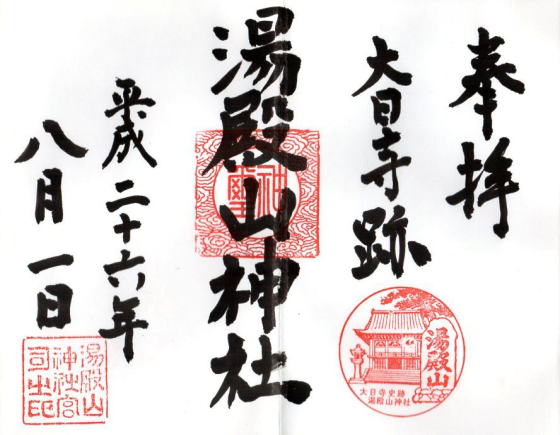 奉拝
大日寺跡
湯殿山
大日寺史跡
湯殿山神社
湯殿山神社
神璽
平成二十六年
八月一日
湯殿山
神社宮
司之印